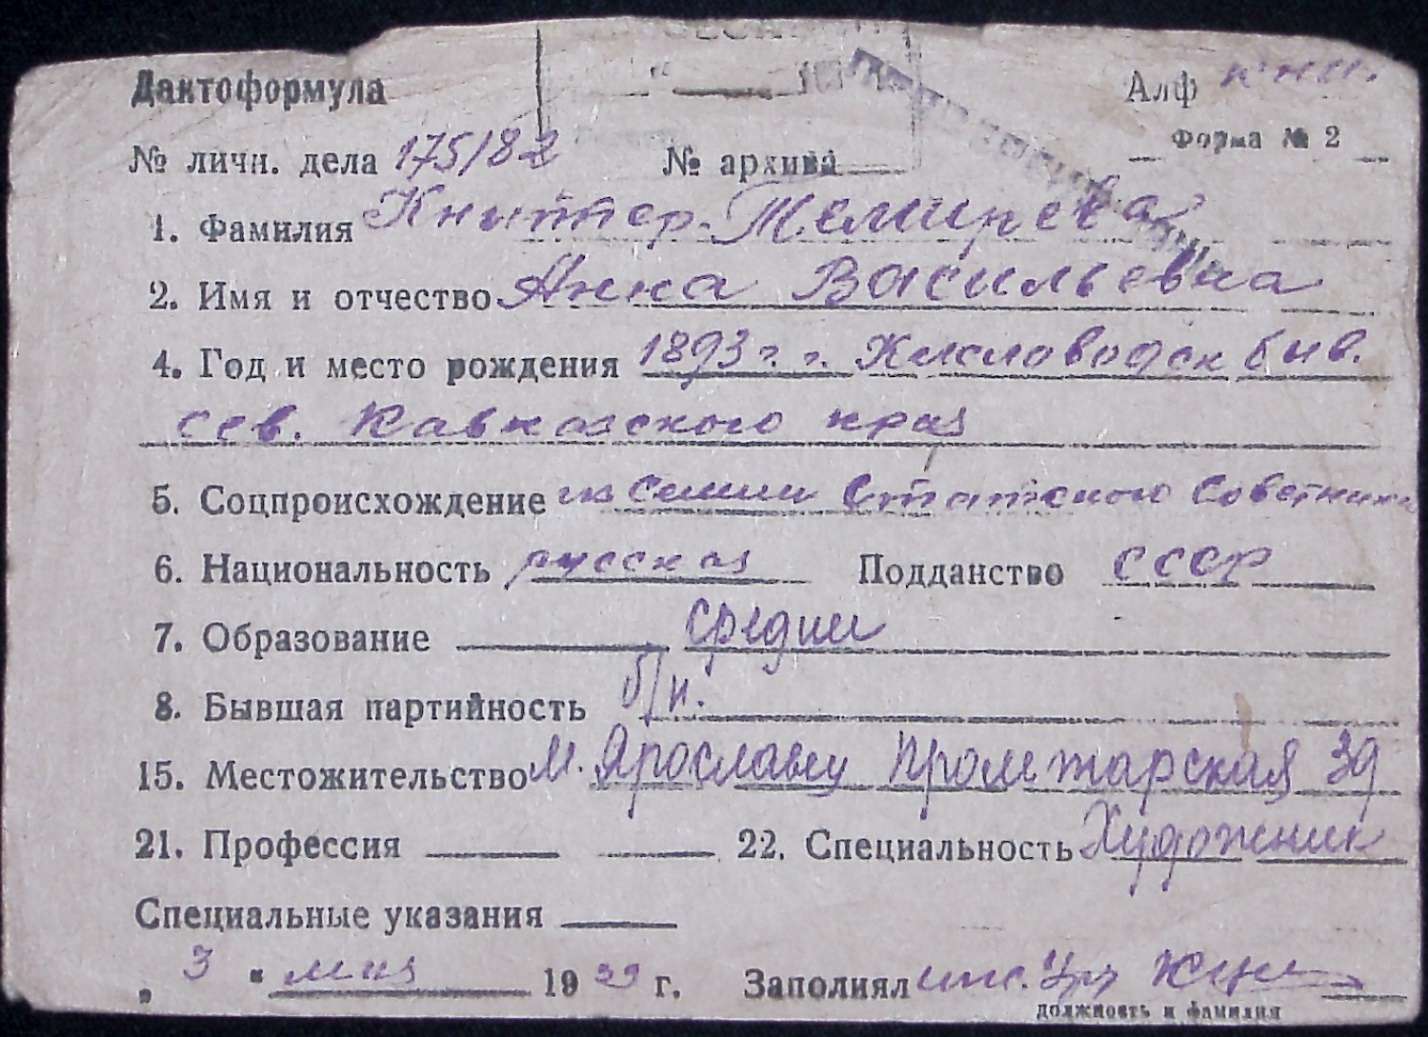 Дактоформула
Алф
Форма № 2
№ личн. дела 175/82 № архива
1. Фамилия Книппер-Темирева
2. Имя и отчество Анна Васильевна
4. Год и место рождения 1893 г. г. Кисловодск быв.
сев. Кавказского края
5. Соцпроисхождение из семьи Статского Советника
6. Национальность русская Подданство СССР
7. Образование средни
8. Бывшая партийность б/п.
15. Местожительство Ярославец Пролетарская 39
21. Профессия 22. Специальность Художник
Специальные указания
„ 3 " мая 1939 г. Заполнял
должность и фамилия